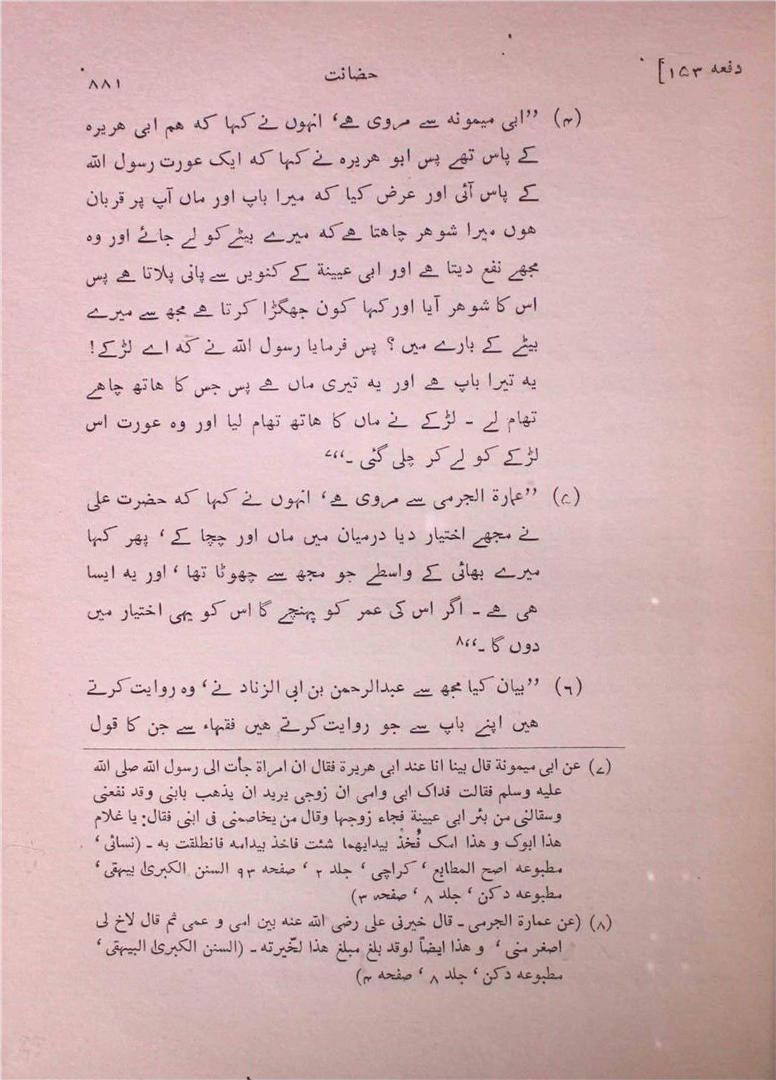 دفعہ ۱۵۳]
حضانت
۸۸۱
(۴) ’’ابی میمونہ سے مروی ہے، انہوں نے کہا کہ ہم ابی ہریرہ
کے پاس تھے پس ابو ہریرہ نے کہا کہ ایک عورت رسول اللہ
کے پاس آئی اور عرض کیا کہ میرا باپ اور ماں آپ پر قربان
ہوں میرا شوہر چاہتا ہے کہ میرے بیٹے کو لے جائے اور وہ
مجھے نفع دیتا ہے اور ابی عیینة کے کنویں سے پانی پلاتا ہے پس
اس کا شوہر آیا اور کہا کون جھگڑا کرتا ہے مجھ سے میرے
بیٹے کے بارے میں؟ پس فرمایا رسول اللہ نے کہ اے لڑکے!
یہ تیرا باپ ہے اور یہ تیری ماں ہے پس جس کا ہاتھ چاہے
تھام لے ۔ لڑکے نے ماں کا ہاتھ تھام لیا اور وہ عورت اس
لڑکے کو لے کر چلی گئی ۔‘‘۷
(۵) ’’عمارة الجرمی سے مروی ہے، انہوں نے کہا کہ حضرت علی
نے مجھے اختیار دیا درمیان میں ماں اور چچا کے، پھر کہا
میرے بھائی کے واسطے جو مجھ سے چھوٹا تھا، اور یہ ایسا
ہی ہے ۔ اگر اس کی عمر کو پہنچے گا اس کو یہی اختیار میں
دوں گا ۔‘‘۸
(٦) ’’بیان کیا مجھ سے عبدالرحمن بن ابی الزناد نے، وہ روایت کرتے
ہیں اپنے باپ سے جو روایت کرتے ہیں فقہاء سے جن کا قول
(۷) عن ابی میمونة قال بینا انا عند ابی هریرة فقال ان امراة جأت الی رسول اللہ صلی اللہ
علیه وسلم فقالت فداک ابی وامی ان زوجی یرید ان یذهب بابنی وقد نفعنی
وسقالنی من بئر ابی عیینة فجاء زوجها وقال من یخاصمنی فی ابنی فقال: یا غلام
هذا ابوک و هذا امک فُخذْ بیدایهما شئت فاخذ بیدامه فانطلقت به ۔ (نسائی،
مطبوعه اصح المطابع، کراچی، جلد ۲، صفحه ۹۳ السنن الکبریٰ بیہقی،
مطبوعه دکن، جلد ۸، صفحه ۳)
(۸) (عن عمارة الجرمی ۔ قال خیرنی علی رضی اللہ عنه بین امی و عمی ثم قال لاخ لی
اصغر منی، و هذا ایضاً لوقد بلغ مبلغ هذا لخّیرته ۔ (السنن الکبریٰ البیہقی،
مطبوعه دکن، جلد ۸، صفحه ۴)